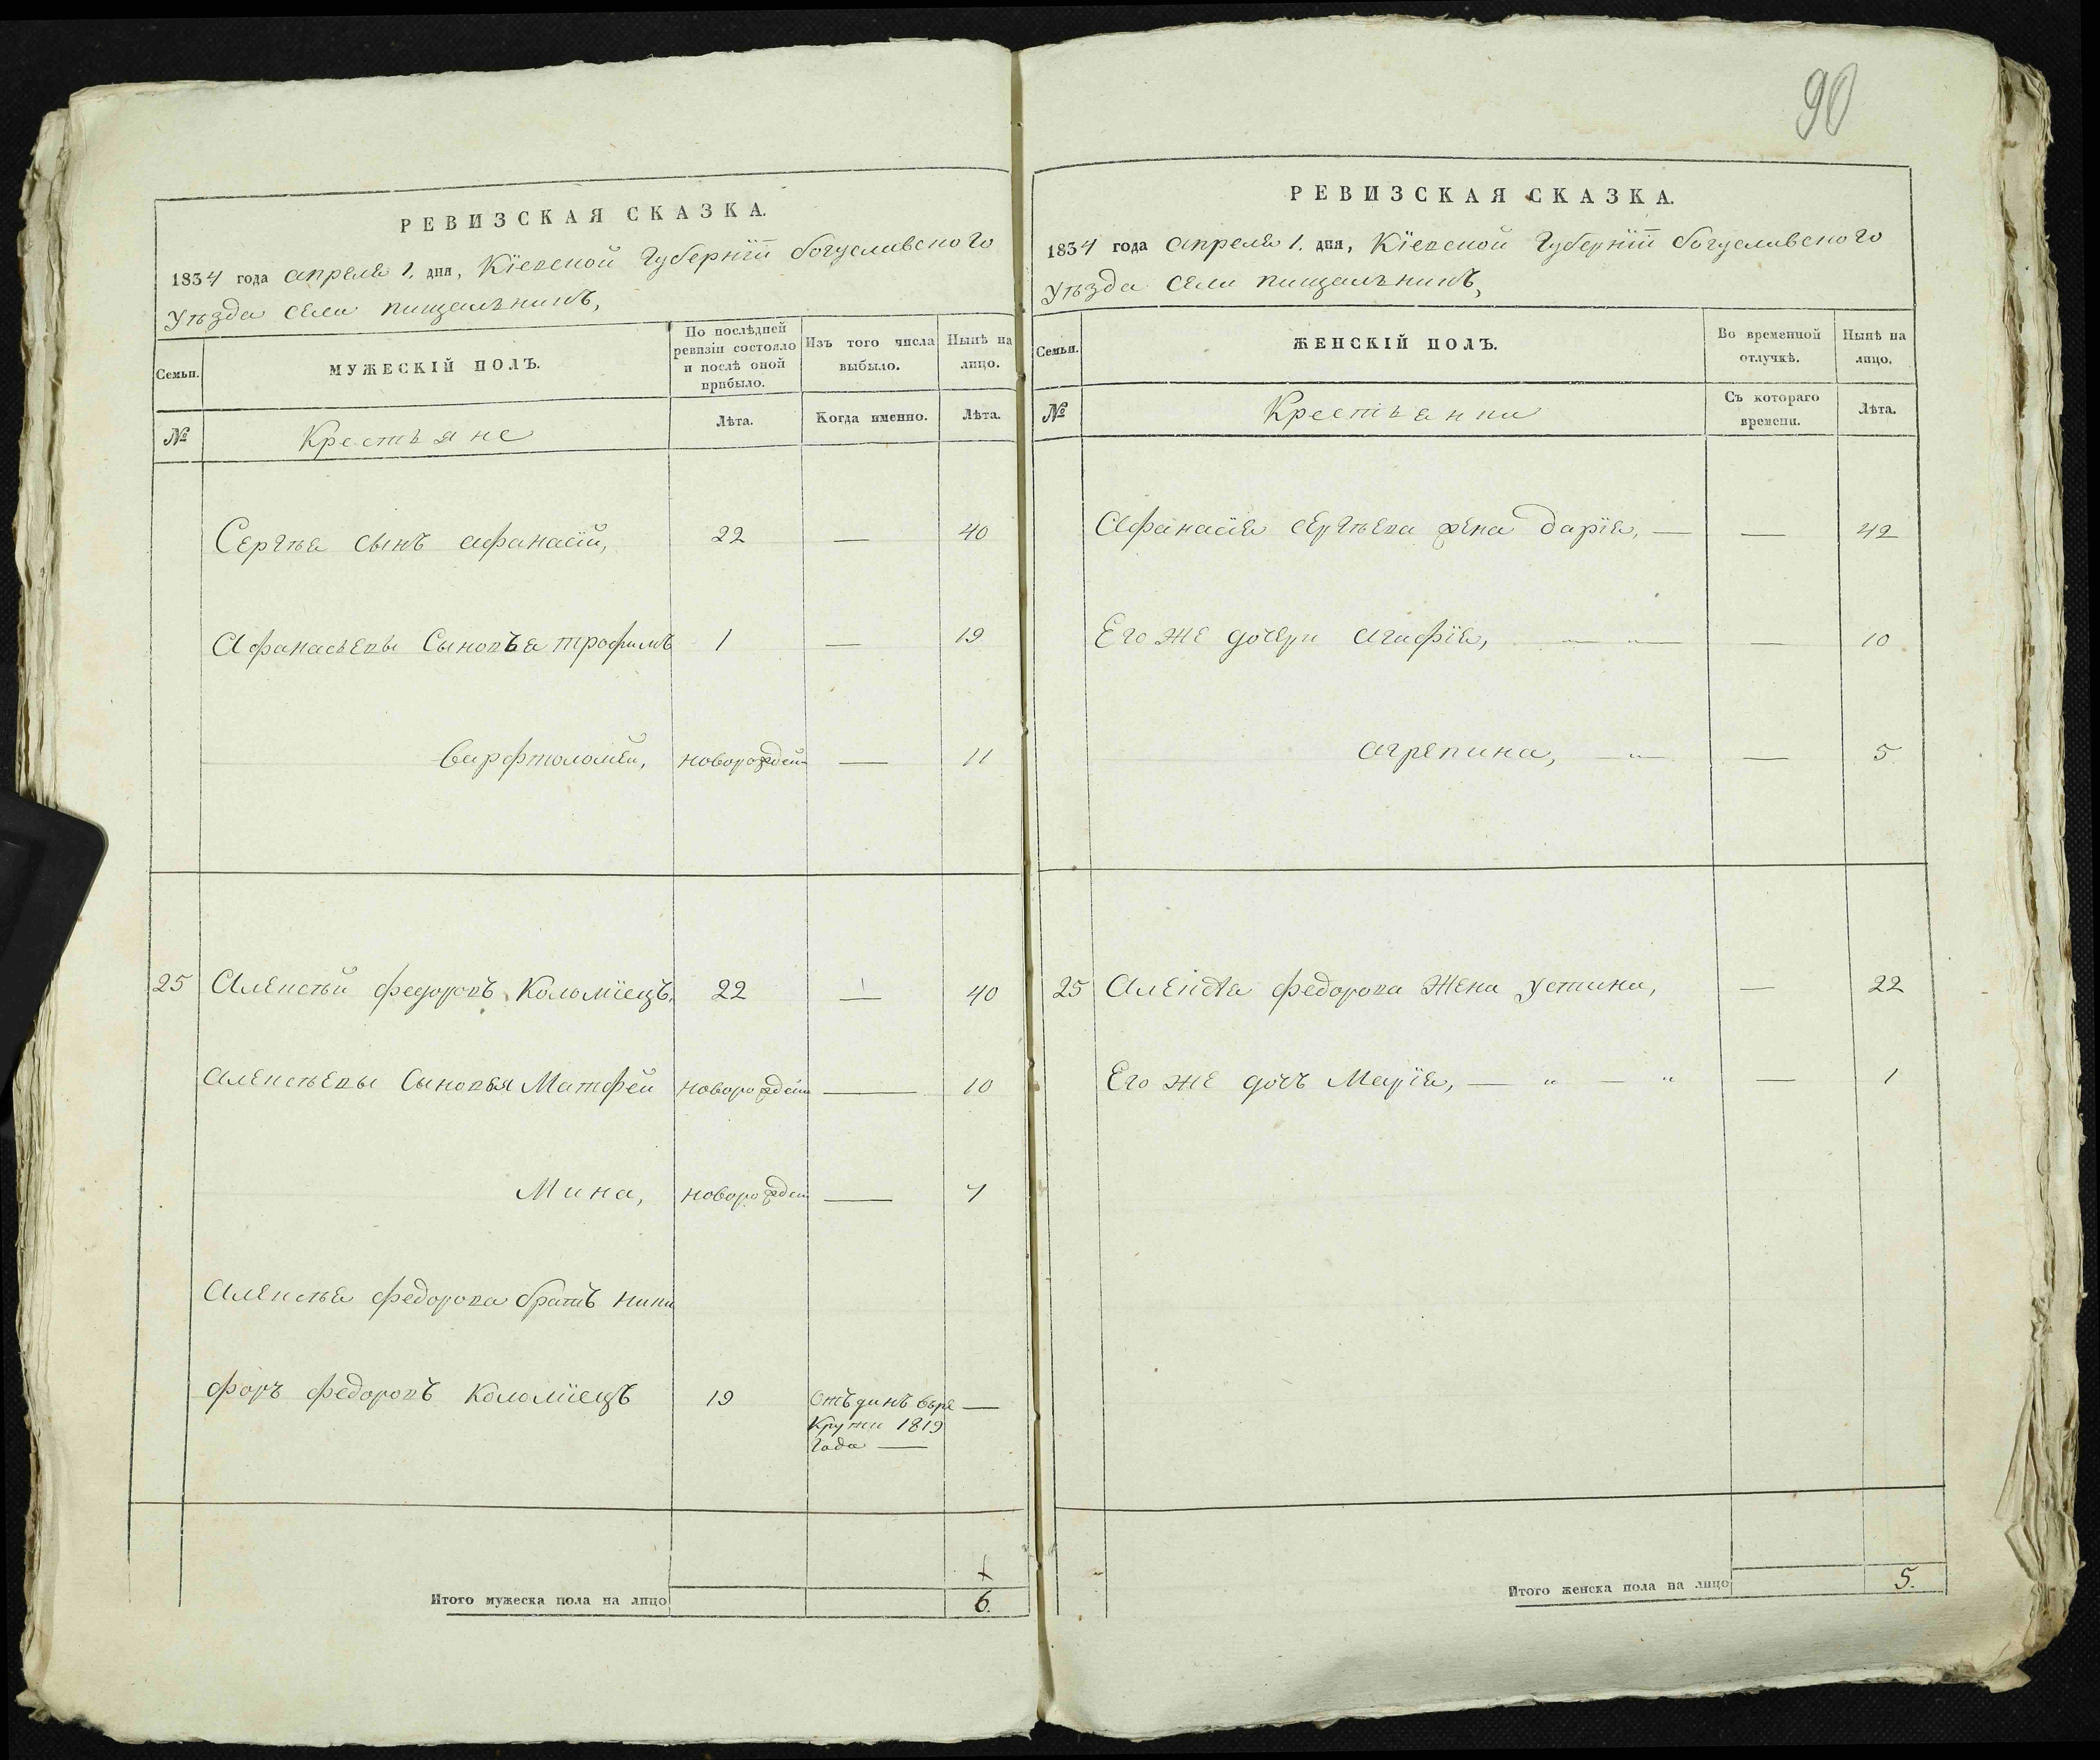 90
РЕВИЗСКАЯ СКАЗКА.
1834 года апреля 1. дня, Кіевской Губерніи богуславского
уѣзда села пищальникъ,
Семьи.
МУЖЕСКІЙ ПОЛЪ.
По послѣдней ревизіи состояло и послѣ оной прибыло.
Изъ того числа выбыло.
Нынѣ на лицо.
№
Крестьяне
Лѣта.
Когда именно.
Лѣта.
Сергѣя сынъ афанасій, 22 — 40
Афанасьевы Сыновья трофимъ 1 — 19
варфтоломей, новорожден — 11
25 Алексѣй федоровъ Коломіецъ, 22 — 40
алексѣевы Сыновья Матфей новорожден — 10
Мина, новорожден — 4
Алексѣя федорова братъ ники
форъ федоровъ Коломіецъ 19 Отъданъ въре —
крути 1819
года —
Итого мужеска пола на лицо 6.
РЕВИЗСКАЯ СКАЗКА.
1834 года апреля 1. дня, Кіевской Губерніи богуславского
уѣзда села пищальникъ,
Семьи.
ЖЕНСКІЙ ПОЛЪ.
Во временной отлучкѣ.
Нынѣ на лицо.
№
Крестьянки
Съ котораго времени.
Лѣта.
Афанасія сергѣева жена дарія, — — 42
Его же дочери агафія, — — 10
агрепина, — — 5
25 Алексѣя федорова жена устина, — 22
Его же дочь Марія, — „ — „ — 1
Итого женска пола на лицо 5.